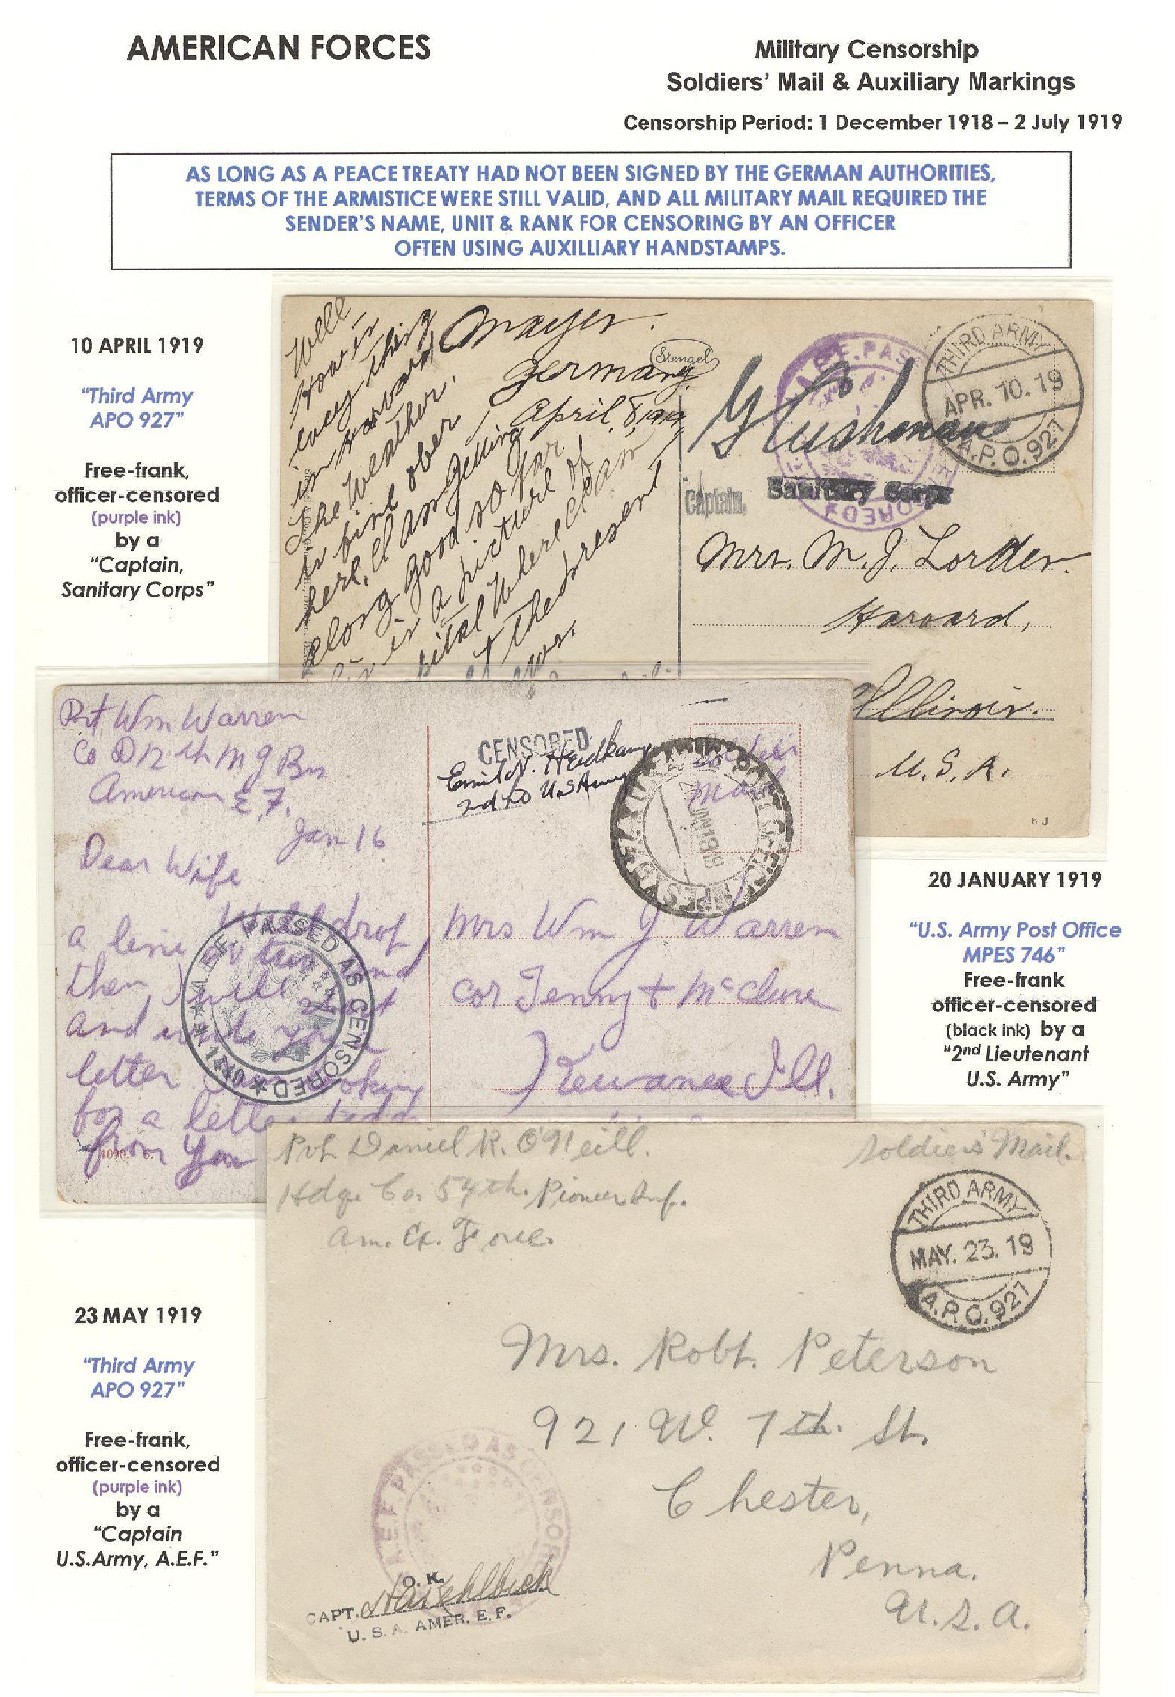 AMERICAN FORCES
Military Censorship
Soldiers' Mail & Auxiliary Markings
Censorship Period: 1 December 1918 – 2 July 1919
AS LONG AS A PEACE TREATY HAD NOT BEEN SIGNED BY THE GERMAN AUTHORITIES,
TERMS OF THE ARMISTICE WERE STILL VALID, AND ALL MILITARY MAIL REQUIRED THE
SENDER'S NAME, UNIT & RANK FOR CENSORING BY AN OFFICER
OFTEN USING AUXILLIARY HANDSTAMPS.
10 APRIL 1919
"Third Army
APO 927"
Free-frank,
officer-censored
(purple ink)
by a
"Captain,
Sanitary Corps"
Mayen
Germany
April 8
Well
How is
every thing
in Harvard
The Weather
is fine over
here. I am getting
along good so far
is a picture of
pital Where I am
at the present
Stengel
A.E.F. PASSED
THIRD ARMY
APR. 10. 19
A.P.O. 927
G Cushman
Captain, Sanitary Corps
Mrs. M. J. Lorden.
Harvard,
Illinois.
U.S.A.
Pvt Wm Warren
Co D 12th M G Bn
American E. F.
Jan 16
Dear Wife
Will drop
a line
then I will
and write you a
letter
for a letter
from you
CENSORED
2nd Lt U.S Army
Soldier
Mail
A.E.F. PASSED AS CENSORED
Mrs Wm J Warren
cor Tenny + McClure
Kewanee Ill.
20 JANUARY 1919
"U.S. Army Post Office
MPES 746"
Free-frank
officer-censored
(black ink) by a
"2nd Lieutenant
U.S. Army"
Pvt. Daniel R. O'Neill.
Hdqs Co. 54th. Pioneer Inf.
Am. Ex. Force.
Soldier's Mail.
THIRD ARMY
MAY. 23. 19
A.P.O. 927
Mrs. Robt. Peterson
921 W. 7th. St.
Chester,
Penna.
U.S.A.
A.E.F. PASSED AS CENSORED
O.K.
CAPT.
U.S.A. AMER. E.F.
23 MAY 1919
"Third Army
APO 927"
Free-frank,
officer-censored
(purple ink)
by a
"Captain
U.S.Army, A.E.F."